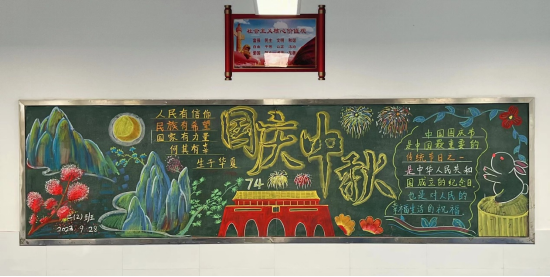 社会主义核心价值观
富强 民主 文明 和谐
人民有信仰
民族有希望
国家有力量
何其有幸
生于华夏
国庆中秋
74
中国国庆节
是中国最重要的
传统节日之一
是中华人民共和
国成立的纪念日
也是对人民的
幸福生活的祝福
(2)班
2023.9.28